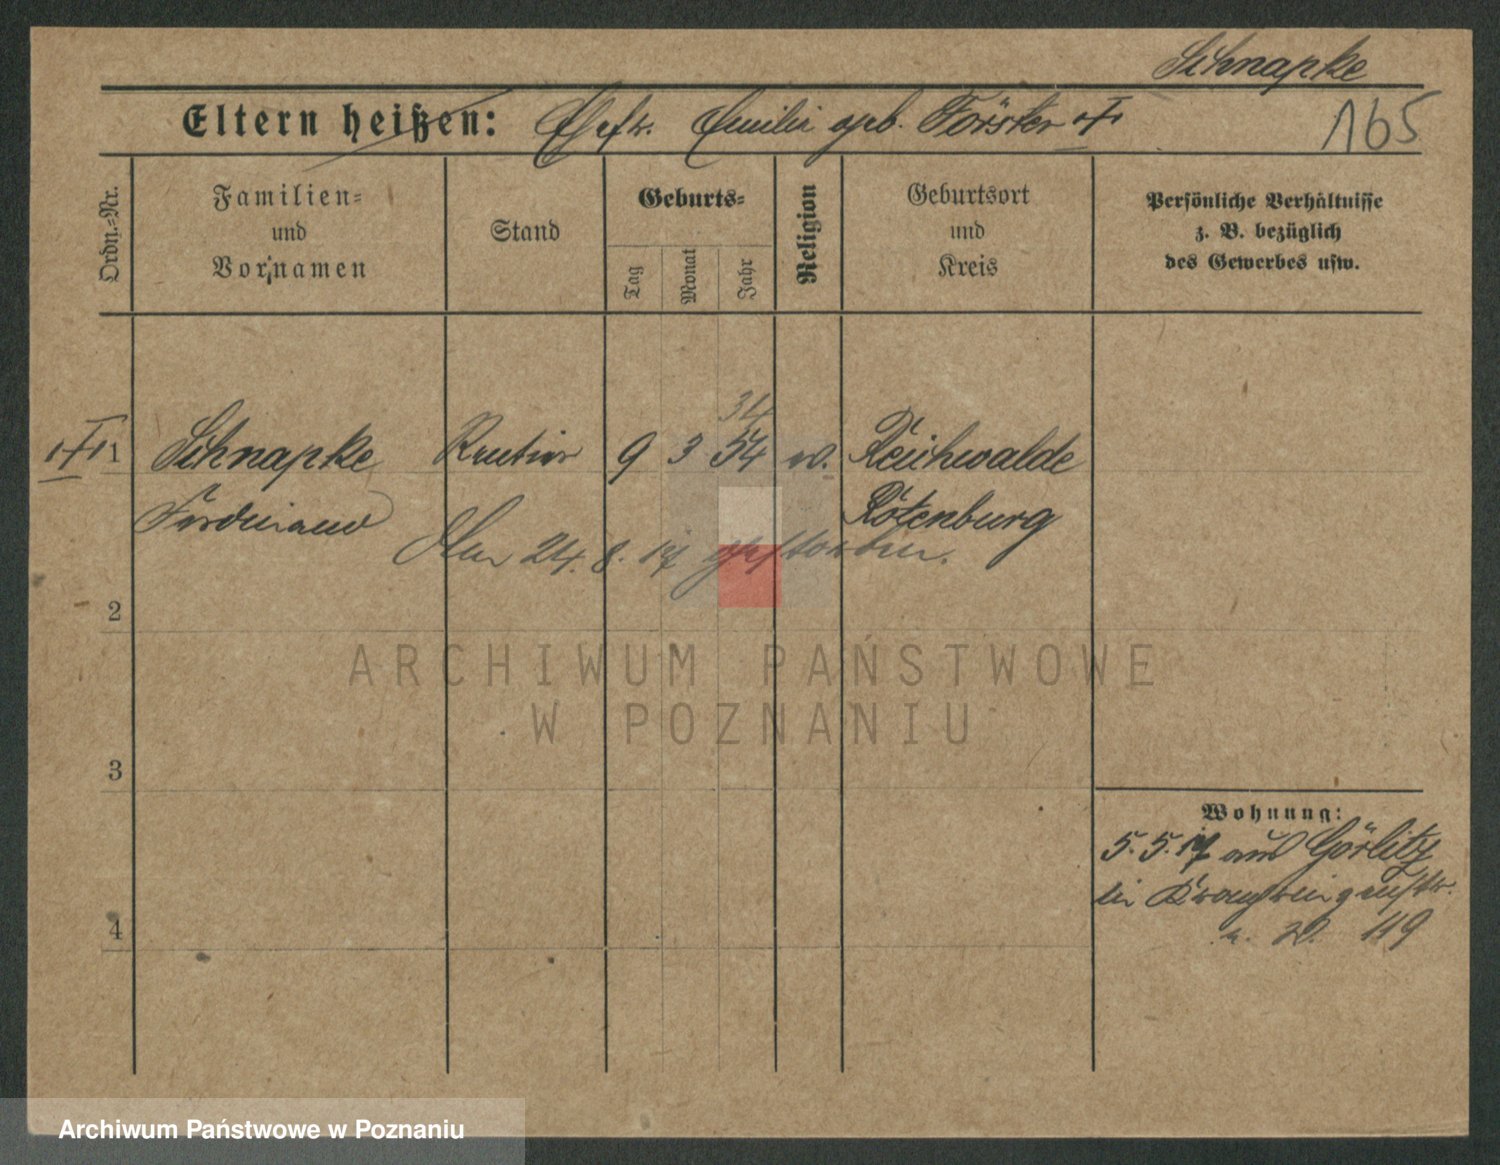 Schnapke
165
Eltern heißen: Ehefr. Emilie geb. Förster
Ordn.=Nr.
Familien=
und
Vornamen
Stand
Geburts=
Tag
Monat
Jahr
Religion
Geburtsort
und
Kreis
Persönliche Verhältnisse
z. B. bezüglich
des Gewerbes usw.
34
1 Schnapke Rentier 9 3 54 ev. Reichwalde
Ferdinand Rotenburg
Am 24. 8. 17 gestorben.
2
ARCHIWUM PAŃSTWOWE
W POZNANIU
3
Wohnung:
5. 5. 17 aus Görlitz
4
119
Archiwum Państwowe w Poznaniu